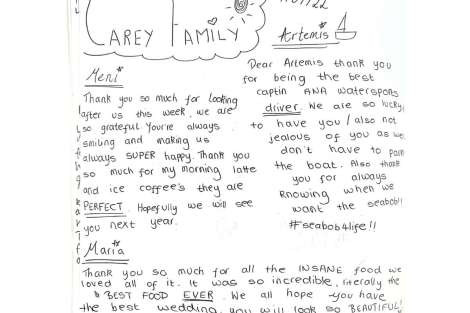 CAREY FAMILY
Meni*
Thank you so much for looking
after us this week, we are
so grateful. You're always
smiling and making us
always SUPER happy. Thank you
so much for my morning latte
and ice coffee's they are
PERFECT. Hopefully we will see
you next year.
Artemis*
Dear Artemis thank you
for being the best
captin ANA watersports
driver. We are so lucky
to have you / also not
jealous of you as we
don't have to park
the boat. Also thank
you for always
knowing when we
want the seabob!
#seabob4life!!
Maria*
Thank you so much for all the INSANE food we
loved all of it. It was so incredible, literally the
BEST FOOD EVER. We all hope you have
the best wedding, you will look so BEAUTIFUL!